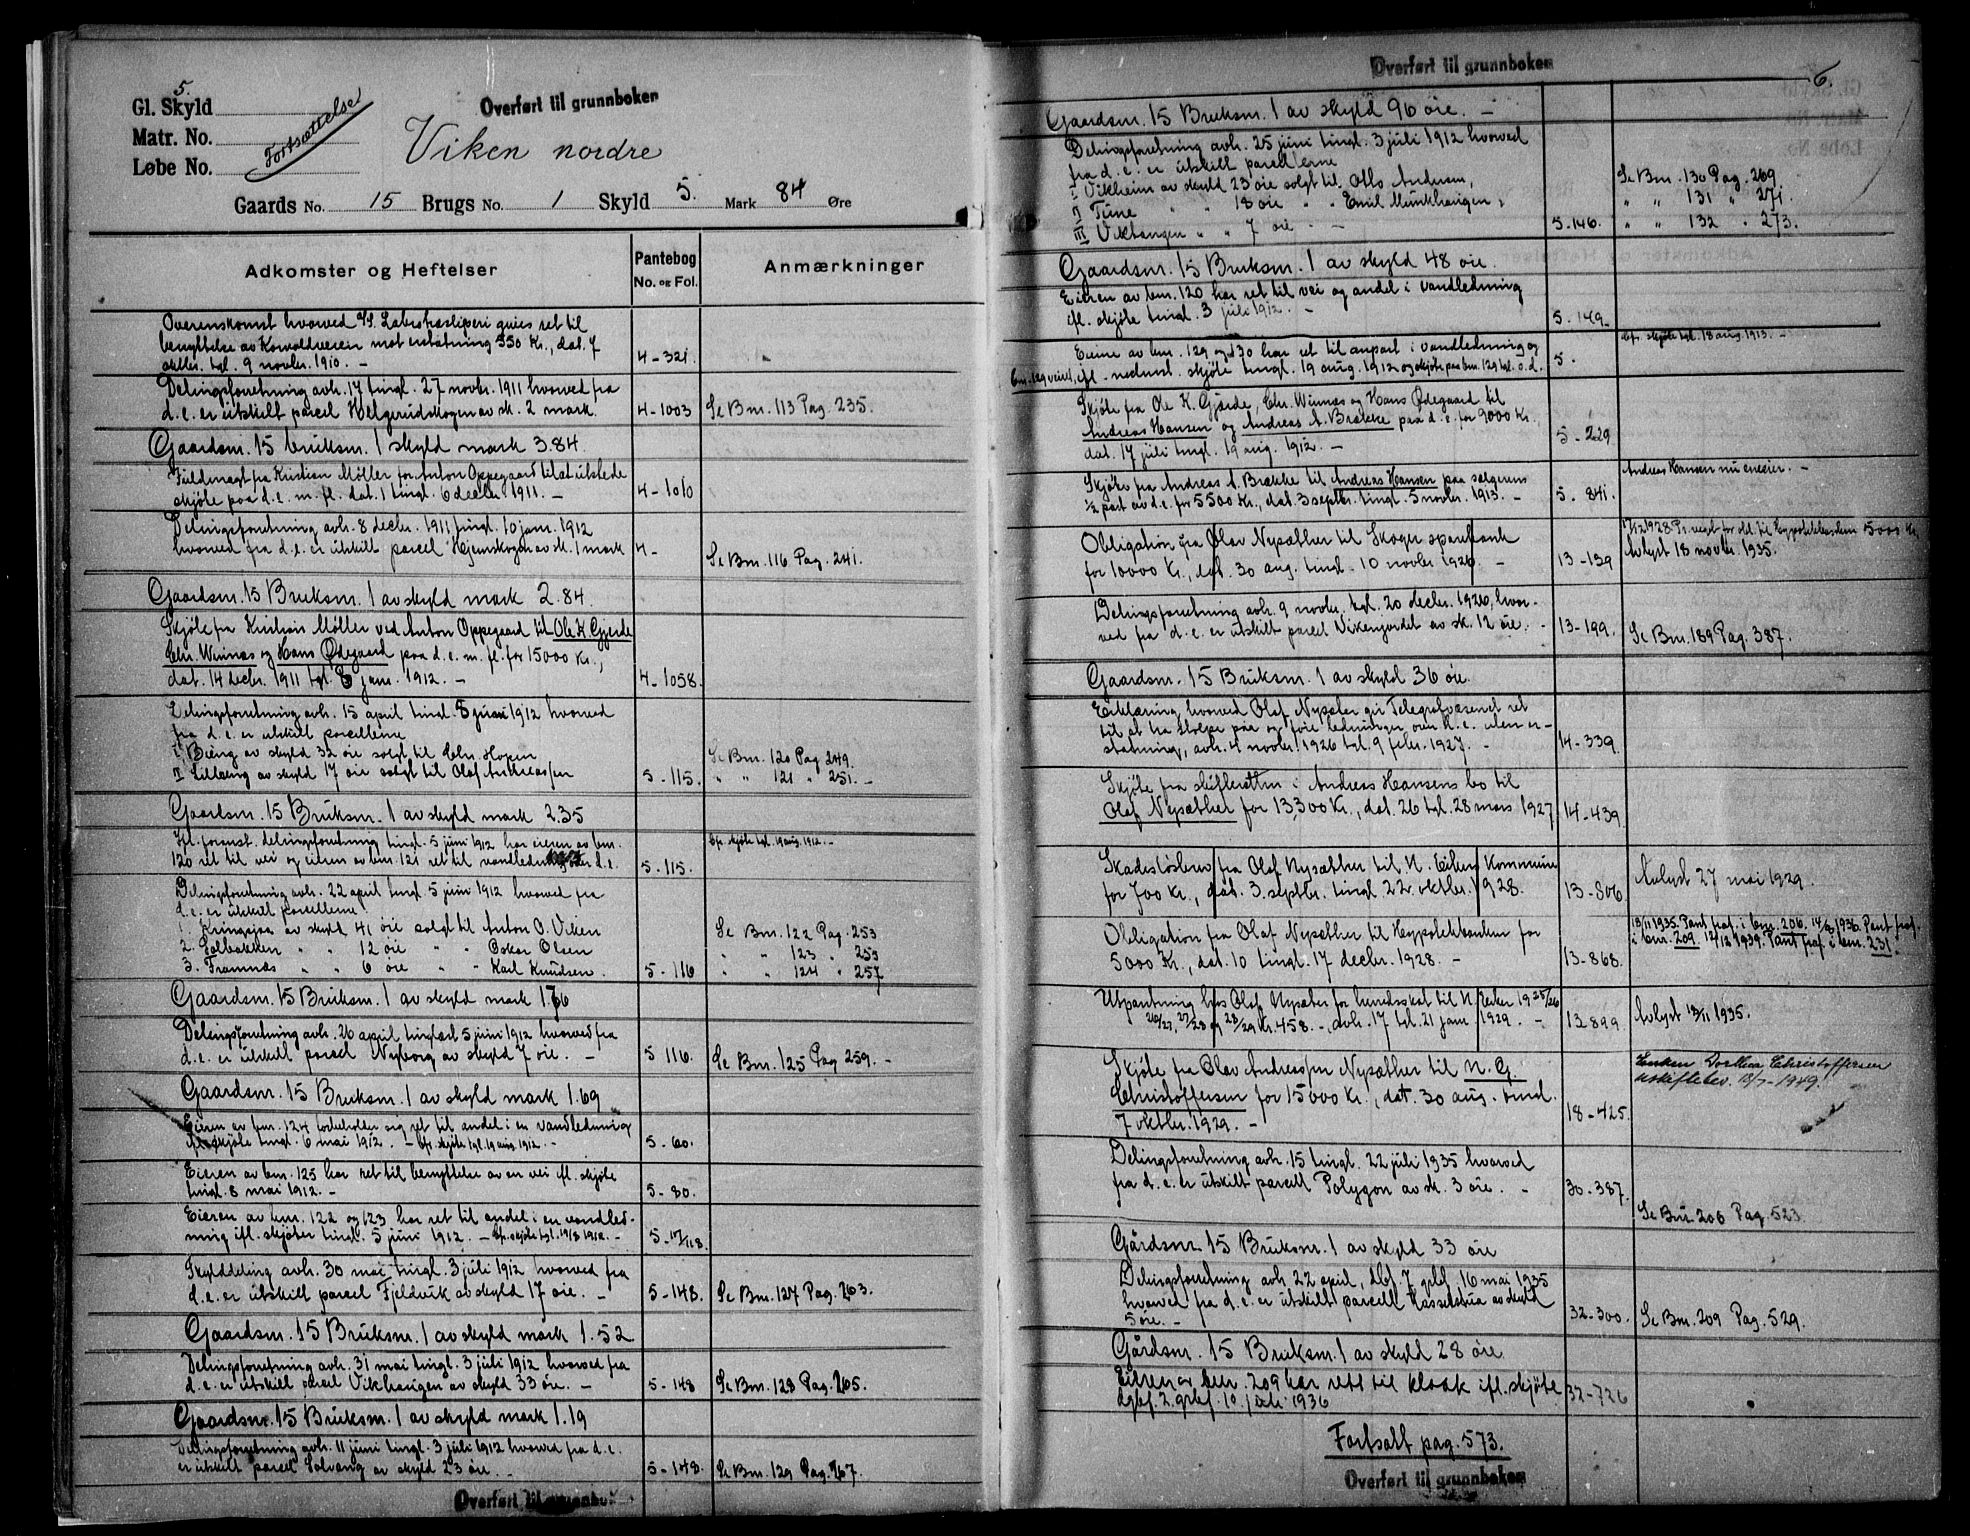 5.
Gl. Skyld
Overført til grunnboken
Matr. No.
Fortsættelse
Løbe No.
Viken nordre
Gaards No. 15 Brugs No. 1 Skyld 5. Mark 84 Øre
Adkomster og Heftelser
Pantebog No. og Fol.
Anmærkninger
Overenskomst hvorved A/S. Labrotræsliperi gives ret til
benyttelse av Korvaldveien mot erstatning 550 Kr., dat. 7
oktbr. tgl. 9 novbr. 1910. —
4-321.
Delingsforretning avh. 17 tingl. 27 novbr. 1911 hvorved fra
d.e. er utskilt parcel Helgerudskogen av sk. 2 mark.
4-1003
Se Bnr. 113 Pag. 235.
Gaardsnr. 15 bruksnr. 1 skyld mark 3.84.
Fuldmagt fra Kristian Møller for Anton Oppegaard til at utstede
skjøte paa d.e. m. fl. dat. 1 tingl. 6 decbr. 1911. —
4-1010
Delingsforretning avh. 8 decbr. 1911 tingl. 10 jan. 1912
hvorved fra d.e. er utskilt parcel Hjemskogen av sk. 1 mark
4-
Se Bnr. 116 Pag. 241.
Gaardsnr. 15 Bruksnr. 1 av skyld mark 2.84.
Skjøte fra Kristian Møller ved Anton Oppegaard til Ole K. Gjerde
Chr. Winnæs og Hans Ødegaard paa d.e. m. fl. for 15000 Kr.,
dat. 14 decbr. 1911 tgl. 8 jan. 1912. —
4-1058.
Delingsforretning avh. 15 april tingl. 5 juni 1912 hvorved
fra d.e. er utskilt parcellerne
I Bæing av skyld 32 øre solgt til Chr. Hopen
II Lillæng av skyld 17 øre solgt til Olaf Andreassen
5-115.
Se Bnr. 120 Pag. 249.
" " 121 " 251. —
Gaardsnr. 15 Bruksnr. 1 av skyld mark 2.35
Ifl. foranst. delingsforretning tingl. 5 juni 1912 har eieren av bnr.
120 ret til vei og eieren av bnr. 121 ret til vandledning over d.e.
5-115.
Cfr. skjøte tgl. 19 aug. 1912. —
Delingsforretning avh. 22 april tingl. 5 juni 1912 hvorved fra
d.e. er utskilt parcellerne
1. Kringsjaa av skyld 41 øre solgt til Anton O. Viken
2. Solbakken " " 12 øre " " Oskar Olsen
3. Framnæs " " 6 øre " " Karl Knudsen.
5-116
Se Bnr. 122 Pag. 253
" " 123 " 255
" " 124 " 257
Gaardsnr. 15 Bruksnr. 1 av skyld mark 1.76
Delingsforretning avh. 20 april tinglæst 5 juni 1912 hvorved fra
d.e. er utskilt parcel Nyborg av skyld 7 øre. —
5 116.
Se Bnr. 125 Pag 259. —
Gaardsnr. 15 Bruksnr. 1 av skyld mark 1.69
Eieren av bnr. 124 forbeholder sig ret til andel i en vandledning
ifl. skjøte tingl. 6 mai 1912. — Cfr. skjøte tgl. 19 aug. 1912. —
5-60.
Eieren av bnr. 125 har ret til benyttelse av en vei ifl. skjøte
tingl. 8 mai 1912. —
5-80.
Eieren av bnr. 122 og 123 har ret til andel i en vandled-
ning ifl. skjøter tingl. 5 juni 1912. — Cfr. skjøte tgl. 19/8 1912. —
5-117/118.
Skylddeling avh. 30 mai tingl. 3 juli 1912 hvorved fra
d.e. er utskilt parcel Fjeldvik av skyld 17 øre. —
5-148.
Se Bnr. 127 Pag. 263.
Gaardsnr. 15 Bruksnr. 1 av skyld mark 1.52
Delingsforretning avh. 31 mai tingl. 3 juli 1912 hvorved fra
d.e. er utskilt parcel Vikhaugen av skyld 33 øre. —
5-148
Se Bnr. 128 Pag. 265.
Gaardsnr. 15 Bruksnr. 1 av skyld mark 1.19
Delingsforretning avh. 11 juni tingl. 3 juli 1912 hvorved fra d.e.
er utskilt parcel Solvang av skyld 23 øre. —
5-148.
Se Bnr. 129 Pag. 267.
Overført til grunnboken
Overført til grunnboken
6.
Gaardsnr. 15 Bruksnr. 1 av skyld 96 øre. —
Delingsforretning avh. 25 juni tingl. 3 juli 1912 hvorved
fra d.e. er utskilt parcellerne
I Vikheim av skyld 23 øre solgt til Otto Andersen,
II Tune " " 18 øre " " Emil Munkhaugen,
III Viktangen " " 7 øre " —
5-146.
Se Bnr. 130 Pag. 269
" " 131 " 271.
" " 132 " 273.
Gaardsnr. 15 Bruksnr. 1 av skyld 48 øre.
Eieren av bnr. 120 har ret til vei og andel i vandledning
ifl. skjøte tingl. 3 juli 1912. —
5-149.
Eierne av bnr. 129 og 130 har ret til anpart i vandledning og
bnr. 129 veiret, ifl. nednvnt. skjøte tingl. 19 aug. 1912 og skjøte paa bnr. 129 tgl. s.d.
5.
Cfr. skjøte tgl. 18 aug. 1913. —
Skjøte fra Ole K. Gjerde, Chr. Winnæs og Hans Ødegaard til
Andreas Hansen og Andreas A. Brække paa d.e. for 9000 Kr.
dat. 17 juli tingl. 19 aug. 1912. —
5-229
Skjøte fra Andreas A. Brække til Andreas Hansen paa sælgerens
1/2 part av d.e. for 5500 Kr., dat. 3 septbr. tingl. 5 novbr. 1913. —
5-841.
Andreas Hansen nu eneeier. —
Obligation fra Olav Nysæther til Skoger sparebank
for 10000 Kr., dat. 30 aug. tingl. 10 novbr 1926. —
13-139
17/12 1928 Pr. vegt for obl. til Hypotekbanken 5000 Kr.
Avlyst 18 novbr. 1935.
Delingsforretning avh. 9 novbr. tgl. 20 decbr. 1926, hvor-
ved fra d.e. er utskilt parcel Vikenjordet av sk. 12 øre. —
13-199.
Se Bnr. 189 Pag. 387.
Gaardsnr. 15 Bruksnr. 1 av skyld 36 øre.
Erklæring, hvorved Olaf Nysæter gir Telegrafvæsenet ret
til at ha stolpe paa og føre ledninger over d.e. uten er-
statning, avh. 4 novbr. 1926 tgl. 9 febr. 1927. —
14-339.
Skjøte fra skifteretten i Andreas Hansens bo til
Olaf Nysæther for 13,300 Kr., dat. 26 tgl. 28 mars 1927
14-439.
Skadesløsbrev fra Olaf Nysæther til N. Eiker Kommune
for 700 Kr., dat. 3. septbr. tingl. 22. oktbr. 1928.
13-806
Avlyst 27 mai 1929.
Obligation fra Olaf Nysæther til Hypotekbanken for
5000 Kr., dat. 10 tingl. 17 decbr. 1928. —
13-868.
18/11 1935. Pant fraf. i bnr. 206. 14/8 1936. Pant fraf.
i bnr. 209. 12/12 1939. Pant fraf. i bnr. 231.
Utpantning hos Olaf Nysæter for herredsskat til N. Eiker 1925/26
26/27, 27/28 og 28/29 Kr. 458. —, avh. 17 tgl. 21 jan. 1929. —
13-899.
Avlyst 18/11 1935.
Skjøte fra Olav Andreassen Nysæther til N. G.
Christoffersen for 15000 Kr., dat. 30 aug. tingl.
7 oktbr. 1929. —
18-425.
Enken Dorthea Christoffersen
uskiftebev. 12/7-1949.
Delingsforretning avh. 15 tingl. 22 juli 1935 hvorved
fra d.e. er utskilt parcell Polygon av sk. 3 øre. —
30-387.
Se Bnr. 206 Pag. 523.
Gårdsnr. 15 Bruksnr. 1 av skyld 33 øre
Delingsforretning avh. 22 april, dbf. 7 grbf. 16 mai 1935
hvorved fra d.e. er utskilt parcell Kasselstua av skyld
5 øre. —
32-300.
Se Bnr. 209 Pag. 529.
Gårdsnr. 15 Bruksnr. 1 av skyld 28 øre
Eieren av bnr. 209 har rett til kloak ifl. skjøte
dgbf. 2. grbf. 10. juli 1936
32-726
Fortsatt pag. 573.
Overført til grunnboken